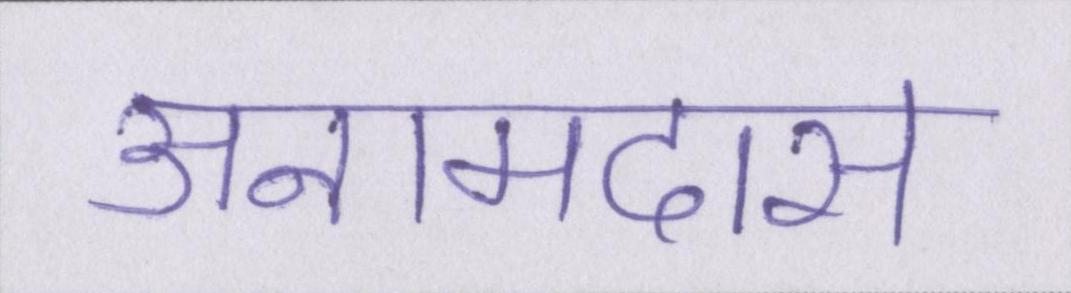 अनामदास